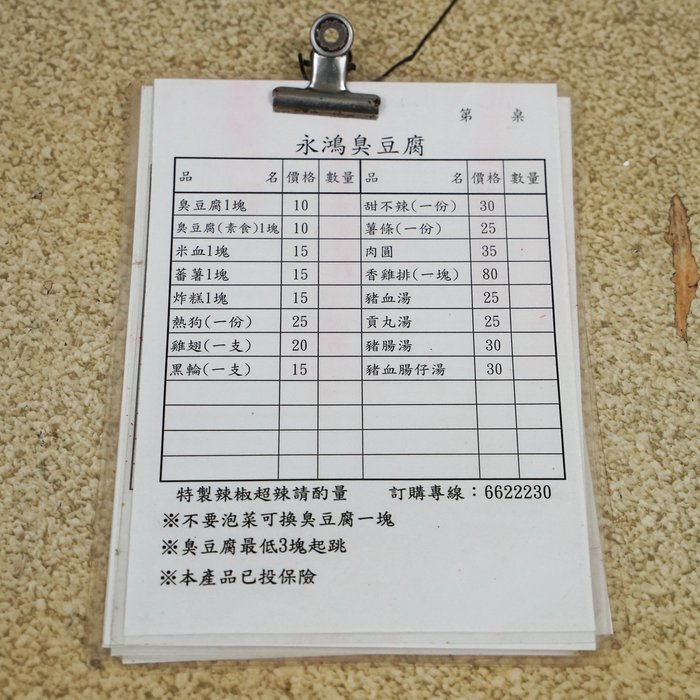 第 桌
永鴻臭豆腐
品 名 價格 數量 品 名 價格 數量
臭豆腐1塊 10 甜不辣(一份) 30
臭豆腐(素食)1塊 10 薯條(一份) 25
米血1塊 15 肉圓 35
蕃薯1塊 15 香雞排(一塊) 80
炸糕1塊 15 豬血湯 25
熱狗(一份) 25 貢丸湯 25
雞翅(一支) 20 豬腸湯 30
黑輪(一支) 15 豬血腸仔湯 30
特製辣椒超辣請酌量 訂購專線：6622230
※不要泡菜可換臭豆腐一塊
※臭豆腐最低3塊起跳
※本產品已投保險